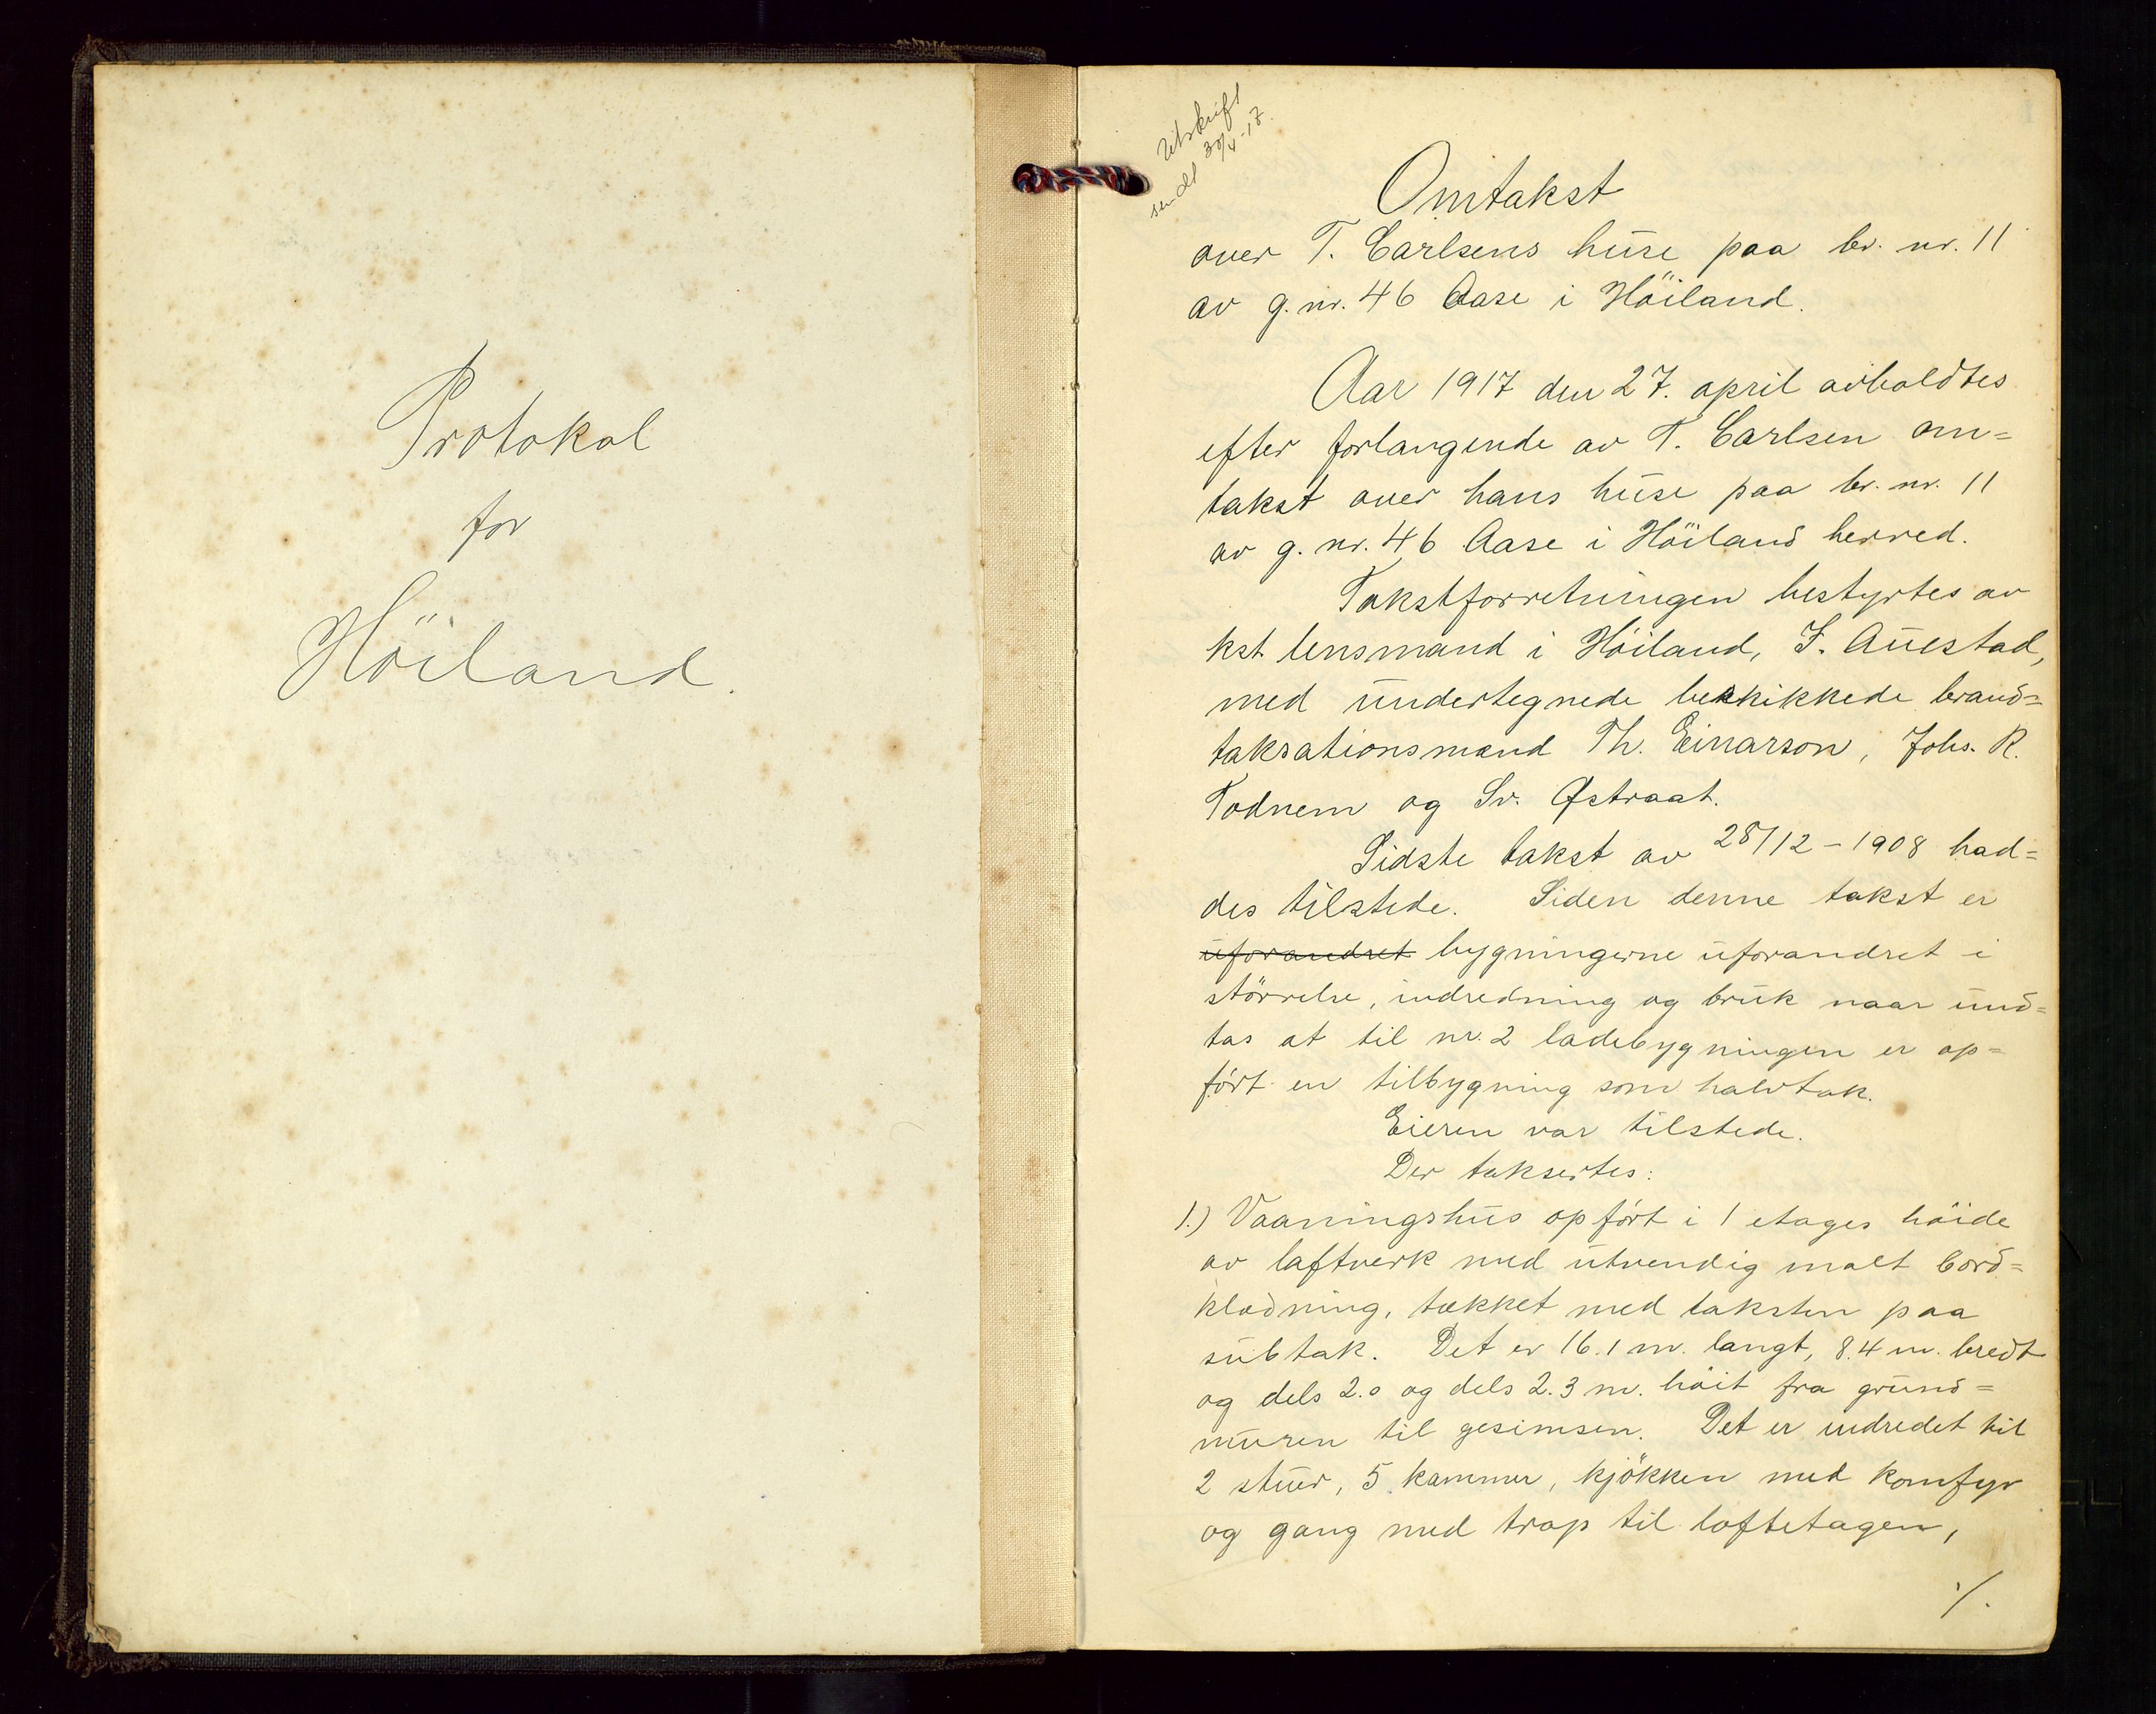 Protokol
for
Höiland.
Utskrift
sendt 30/4-17.
Omtakst
over T. Carlsens huse paa br. nr. 11
av g. nr. 46 Aase i Höiland.
Aar 1917 den 27. april avholdtes
efter forlangende av T. Carlsen om=
takst over hans huse paa br. nr. 11
av g. nr. 46 Aase i Höiland herred.
Takstforretningen bestyrtes av
kst. lensmand i Höiland, F. Auestad,
med undertegnede beskikkede brand=
taksationsmænd Th. Einarson, Johs. R.
Todnem og Sv. Østraat.
Sidste takst av 28/12-1908 had=
des tilstede. Siden denne takst er
uforandret bygningerne uforandret i
störrelse, indredning og bruk naar und=
tas at til nr. 2 ladebygningen er op=
fört en tilbygning som halvtak.
Eieren var tilstede.
Der taksertes:
1.) Vaaningshus opfört i 1 etages höide
av laftverk med utvendig malt bord=
klædning, tækket med taksten paa
subtak. Det er 16.1 m. langt, 8.4 m. bredt
og dels 2.0 og dels 2.3 m. höit fra grund=
muren til gesimsen. Det er indredet til
2 stuer, 5 kammer, kjökken med komfyr
og gang med trap til loftetagen,
./.